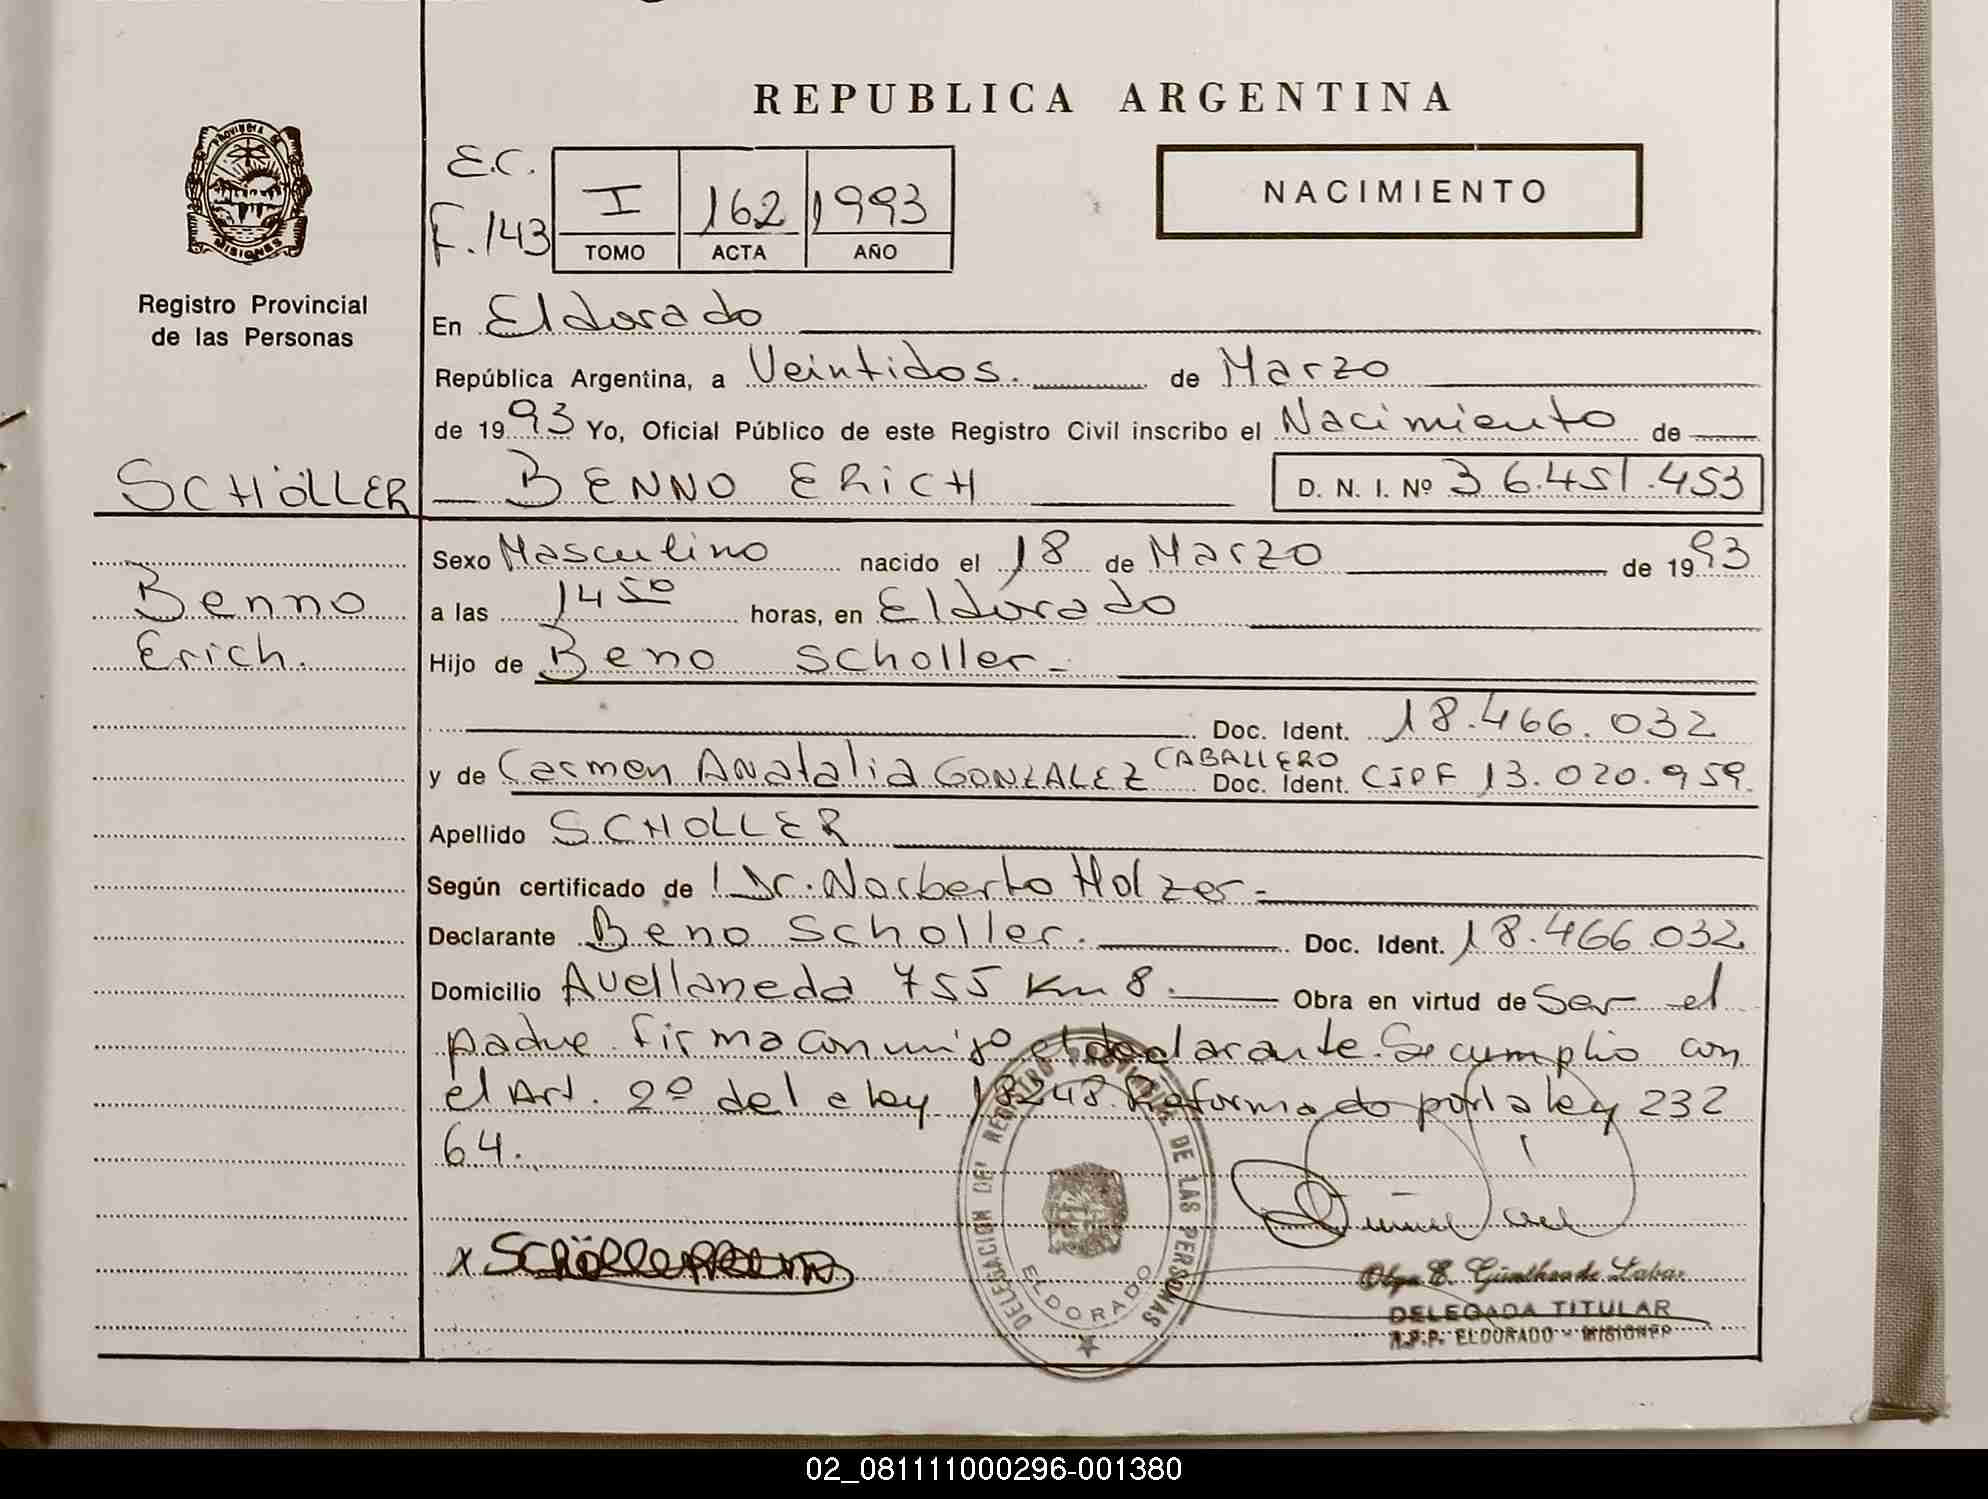 REPUBLICA ARGENTINA
PROVINCIA DE
MISIONES
Registro Provincial
de las Personas
E.C.
F. 143
I 162 1993
TOMO ACTA AÑO
NACIMIENTO
En Eldorado
República Argentina, a Veintidos. de Marzo
de 1993 Yo, Oficial Público de este Registro Civil inscribo el Nacimiento de
SCHÖLLER BENNO ERICH D. N. I. Nº 36.451.453
Sexo Masculino nacido el 18 de Marzo de 1993
Benno a las 14 50 horas, en Eldorado
Erich. Hijo de Beno Scholler-
Doc. Ident. 18.466.032
y de Carmen Anatalia GONZALEZ CABALLERO Doc. Ident. CIPF 13.020.959.
Apellido SCHOLLER
Según certificado de Dr. Norberto Holzer-
Declarante Beno Scholler. Doc. Ident. 18.466.032
Domicilio Avellaneda 755 Km 8. Obra en virtud de Ser el
padre firma conmigo el declarante. Se cumplio con
el Art. 2º de la ley 18248. Reformado por la ley 232
64.
DELEGACION DEL REGISTRO PROVINCIAL DE LAS PERSONAS
ELDORADO
x Schöller
Olga E. Günther de
DELEGADA TITULAR
R.P.P. ELDORADO - MISIONES
02_081111000296-001380